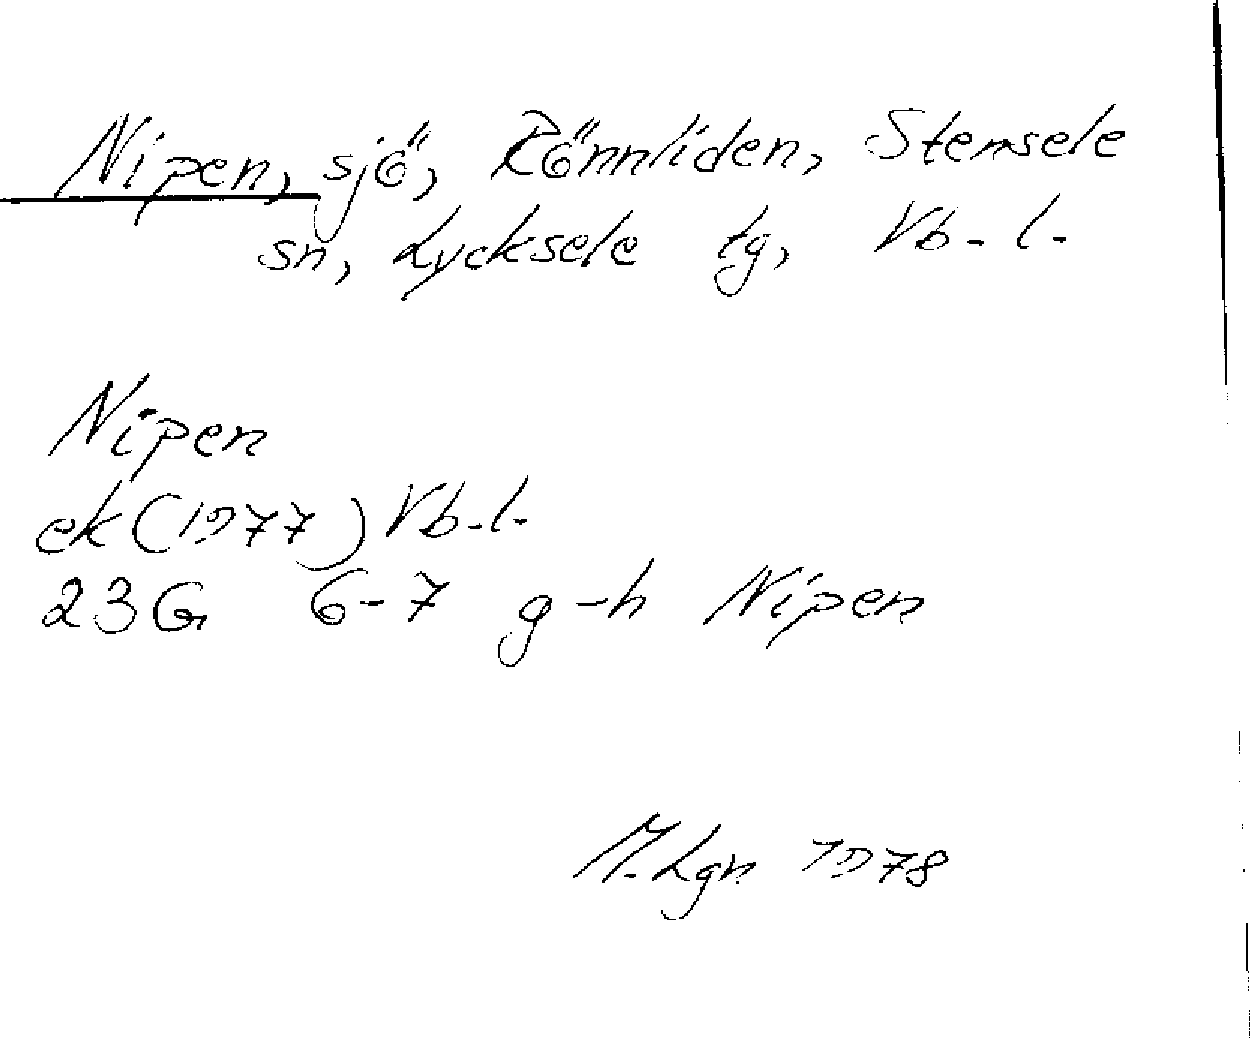 Nipen, sjö, Rönnliden, Stensele
sn, Lycksele tg, Vb. l.
Nipen
ek (1977) Vb. l.
23G 6-7 g-h Nipen
M. Lgn 1978